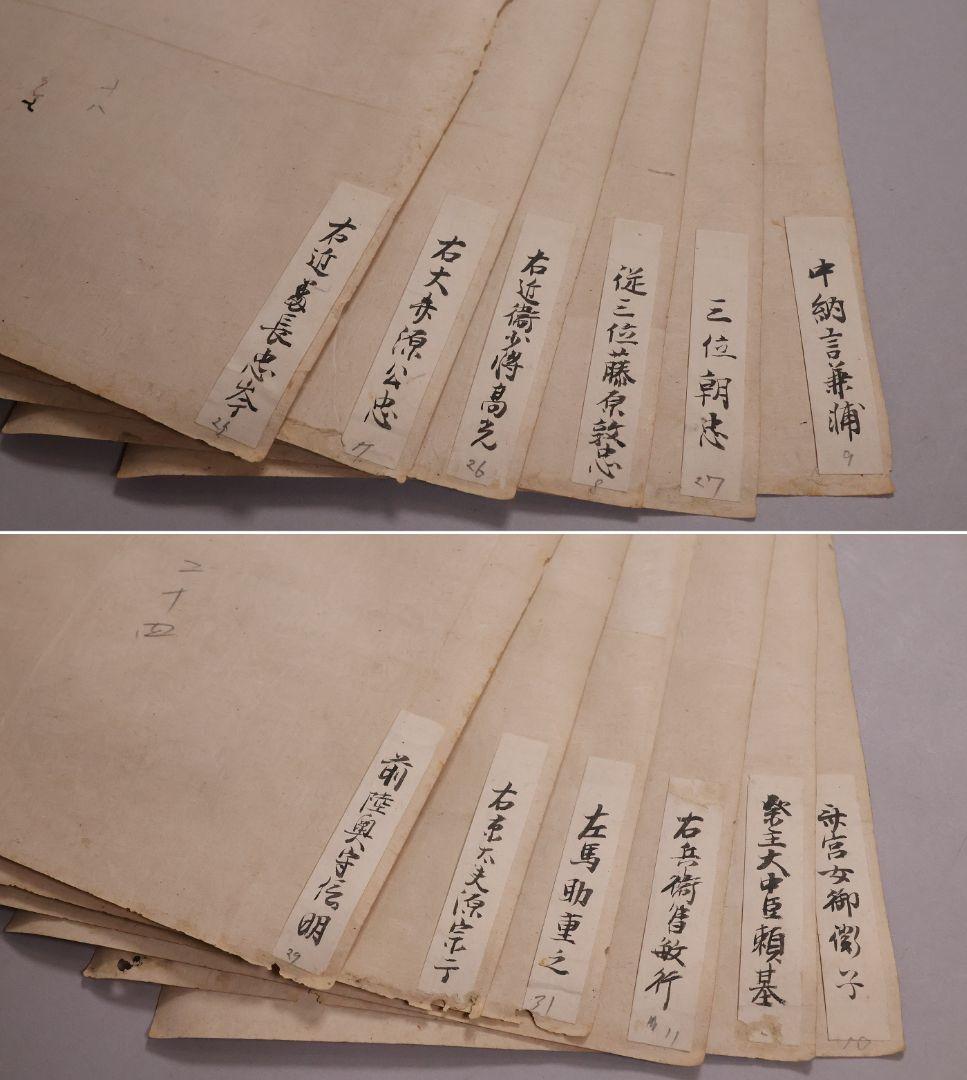 十八
右近番長忠岑
右大弁源公忠
17
右近衛少将高光
26
従三位藤原敦忠
8
三位朝忠
27
中納言兼浦
9
二十四
前陸奥守信明
29
右京太夫源宗于
左馬助重之
31
右兵衛督敏行
11
祭主大中臣頼基
斎宮女御徽子
10